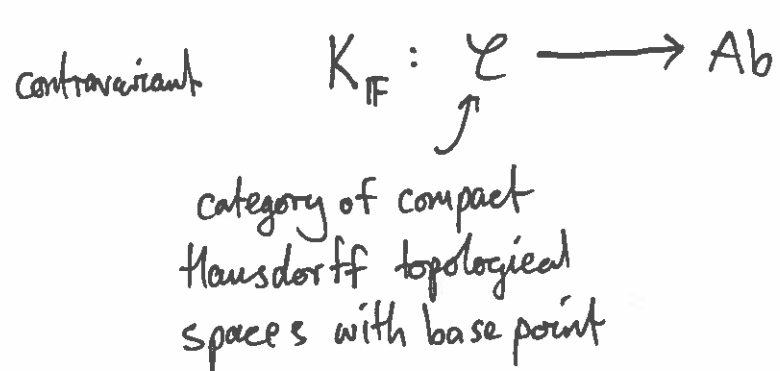 contravariant K_𝔽 : 𝒞 ⟶ Ab
category of compact
Hausdorff topological
spaces with base point